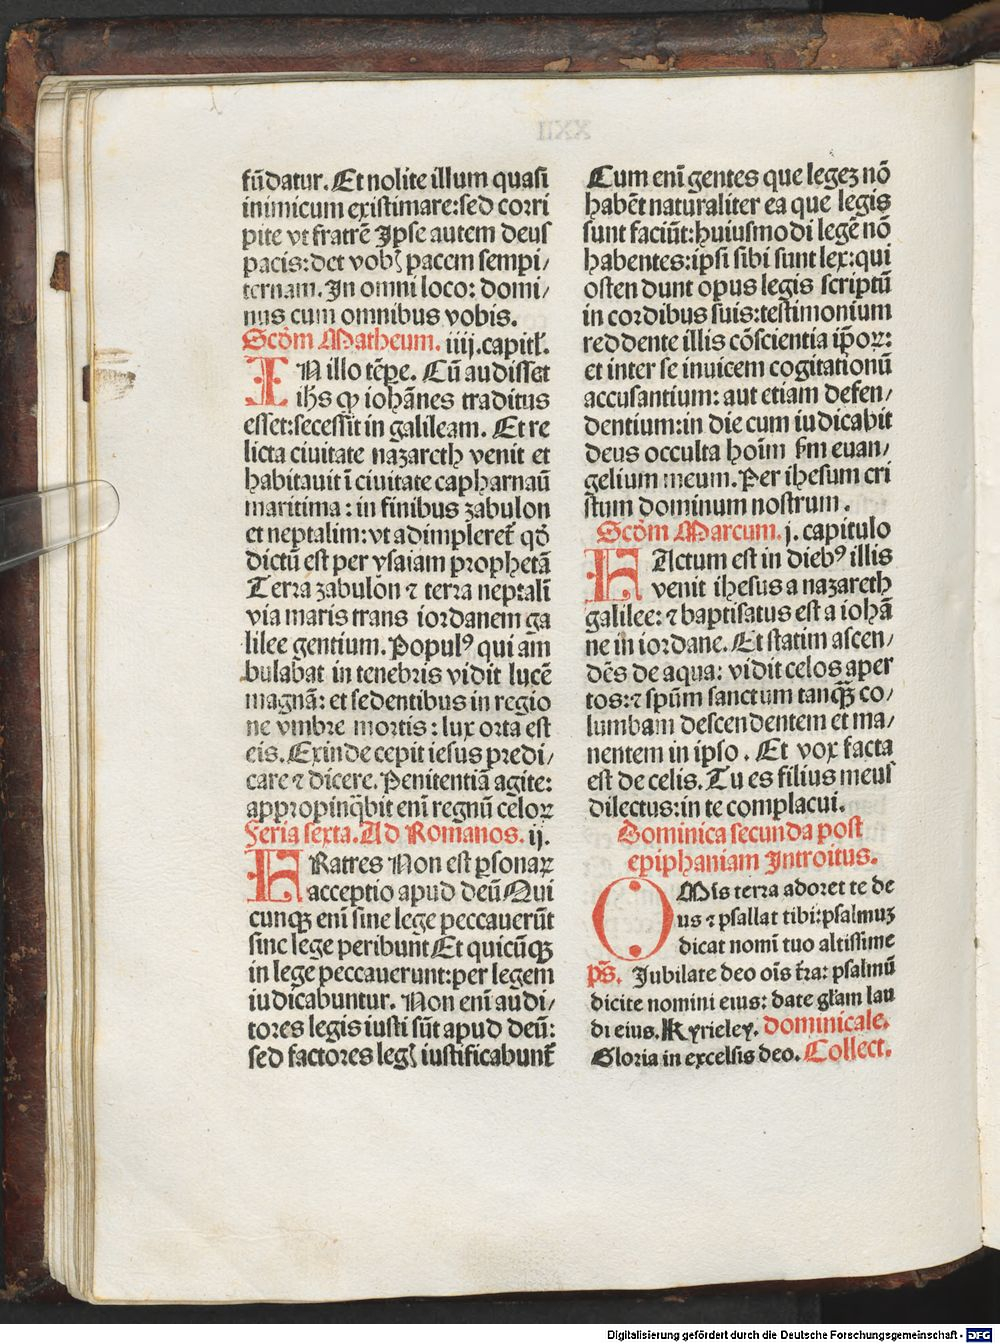 fūdatur. Et nolite illum quasi
inimicum existimare: sed corri
pite vt fratrē Ipse autem deus
pacis: det vobꝭ pacem sempi/
ternam. In omni loco: domi/
nus cum omnibus vobis.
Scd̄m Matheum. iiij. capitł.
IN illo tēpe. Cū audisset
ihs ꝙ iohānes traditus
esset: secessit in galileam. Et re
licta ciuitate nazareth venit et
habitauit ī ciuitate capharnaū
maritima: in finibus zabulon
et neptalim: vt adimpleret̄ qd̄
dictū est per ysaiam prophetā
Terra zabulon ⁊ terra neptalī
via maris trans iordanem ga
lilee gentium. Populꝰ qui am̄
bulabat in tenebris vidit lucē
magnā: et sedentibus in regio
ne vmbre mortis: lux orta est
eis. Exinde cepit iesus predi/
care ⁊ dicere. Penitentiā agite:
appropinq̄bit enī regnū celoꝝ
Feria sexta. Ad Romanos. ij.
FRatres Non est ꝑsonaꝝ
acceptio apud deū Qui
cunqꝫ enī sine lege peccauerūt
sine lege peribunt Et quicūqꝫ
in lege peccauerunt: per legem
iudicabuntur. Non enī audi/
tores legis iusti sūt apud deū:
sed factores legꝭ iustificabunt̄
Cum enī gentes que legeꝫ nō
habēt naturaliter ea que legis
sunt faciūt: huiusmodi legē nō
habentes: ipsi sibi sunt lex: qui
ostendunt opus legis scriptū
in cordibus suis: testimonium
reddente illis cōscientia ip̄oꝝ:
et inter se inuicem cogitationū
accusantium: aut etiam defen/
dentium: in die cum iudicabit
deus occulta hoīm ẜm euan/
gelium meum. Per ihesum cri
stum dominum nostrum.
Scd̄m Marcum. j. capitulo
FActum est in diebꝰ illis
venit ihesus a nazareth
galilee: ⁊ baptisatus est a iohā
ne in iordane. Et statim ascen/
dēs de aqua: vidit celos aper
tos: ⁊ spūm sanctum tanqꝫ co/
lumbam descendentem et ma/
nentem in ipso. Et vox facta
est de celis. Tu es filius meus
dilectus: in te complacui.
Dominica secunda post
epiphaniam Introitus.
OMīs terra adoret te de
us ⁊ psallat tibi: psalmuꝫ
dicat nomī tuo altissime
ps̄. Iubilate deo oīs t̄ra: psalmū
dicite nomini eius: date gl̄am lau
di eius. Kyrieley. dominicale.
Gloria in excelsis deo. Collect.
Digitalisierung gefördert durch die Deutsche Forschungsgemeinschaft - DFG